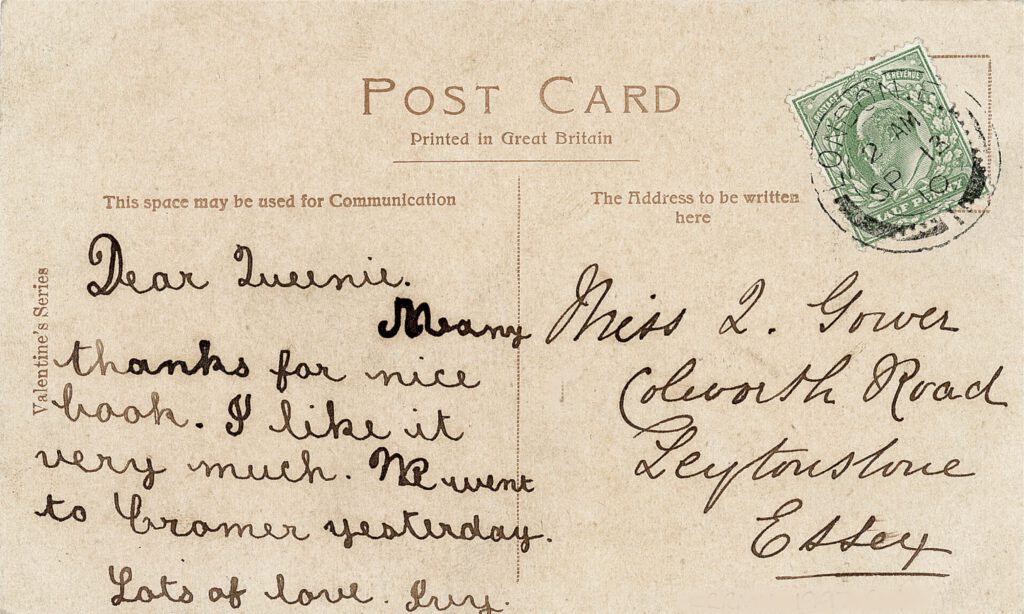 POST CARD
Printed in Great Britain
This space may be used for Communication
The Address to be written
here
Valentine's Series
POSTAGE & REVENUE
HALF PENNY
LONDON
2 AM
SP 12
10
Dear Queenie.
Many
thanks for nice
book. I like it
very much. We went
to Cromer yesterday.
Lots of love. Ivy.
Miss Q. Gower
Colworth Road
Leytonstone
Essex